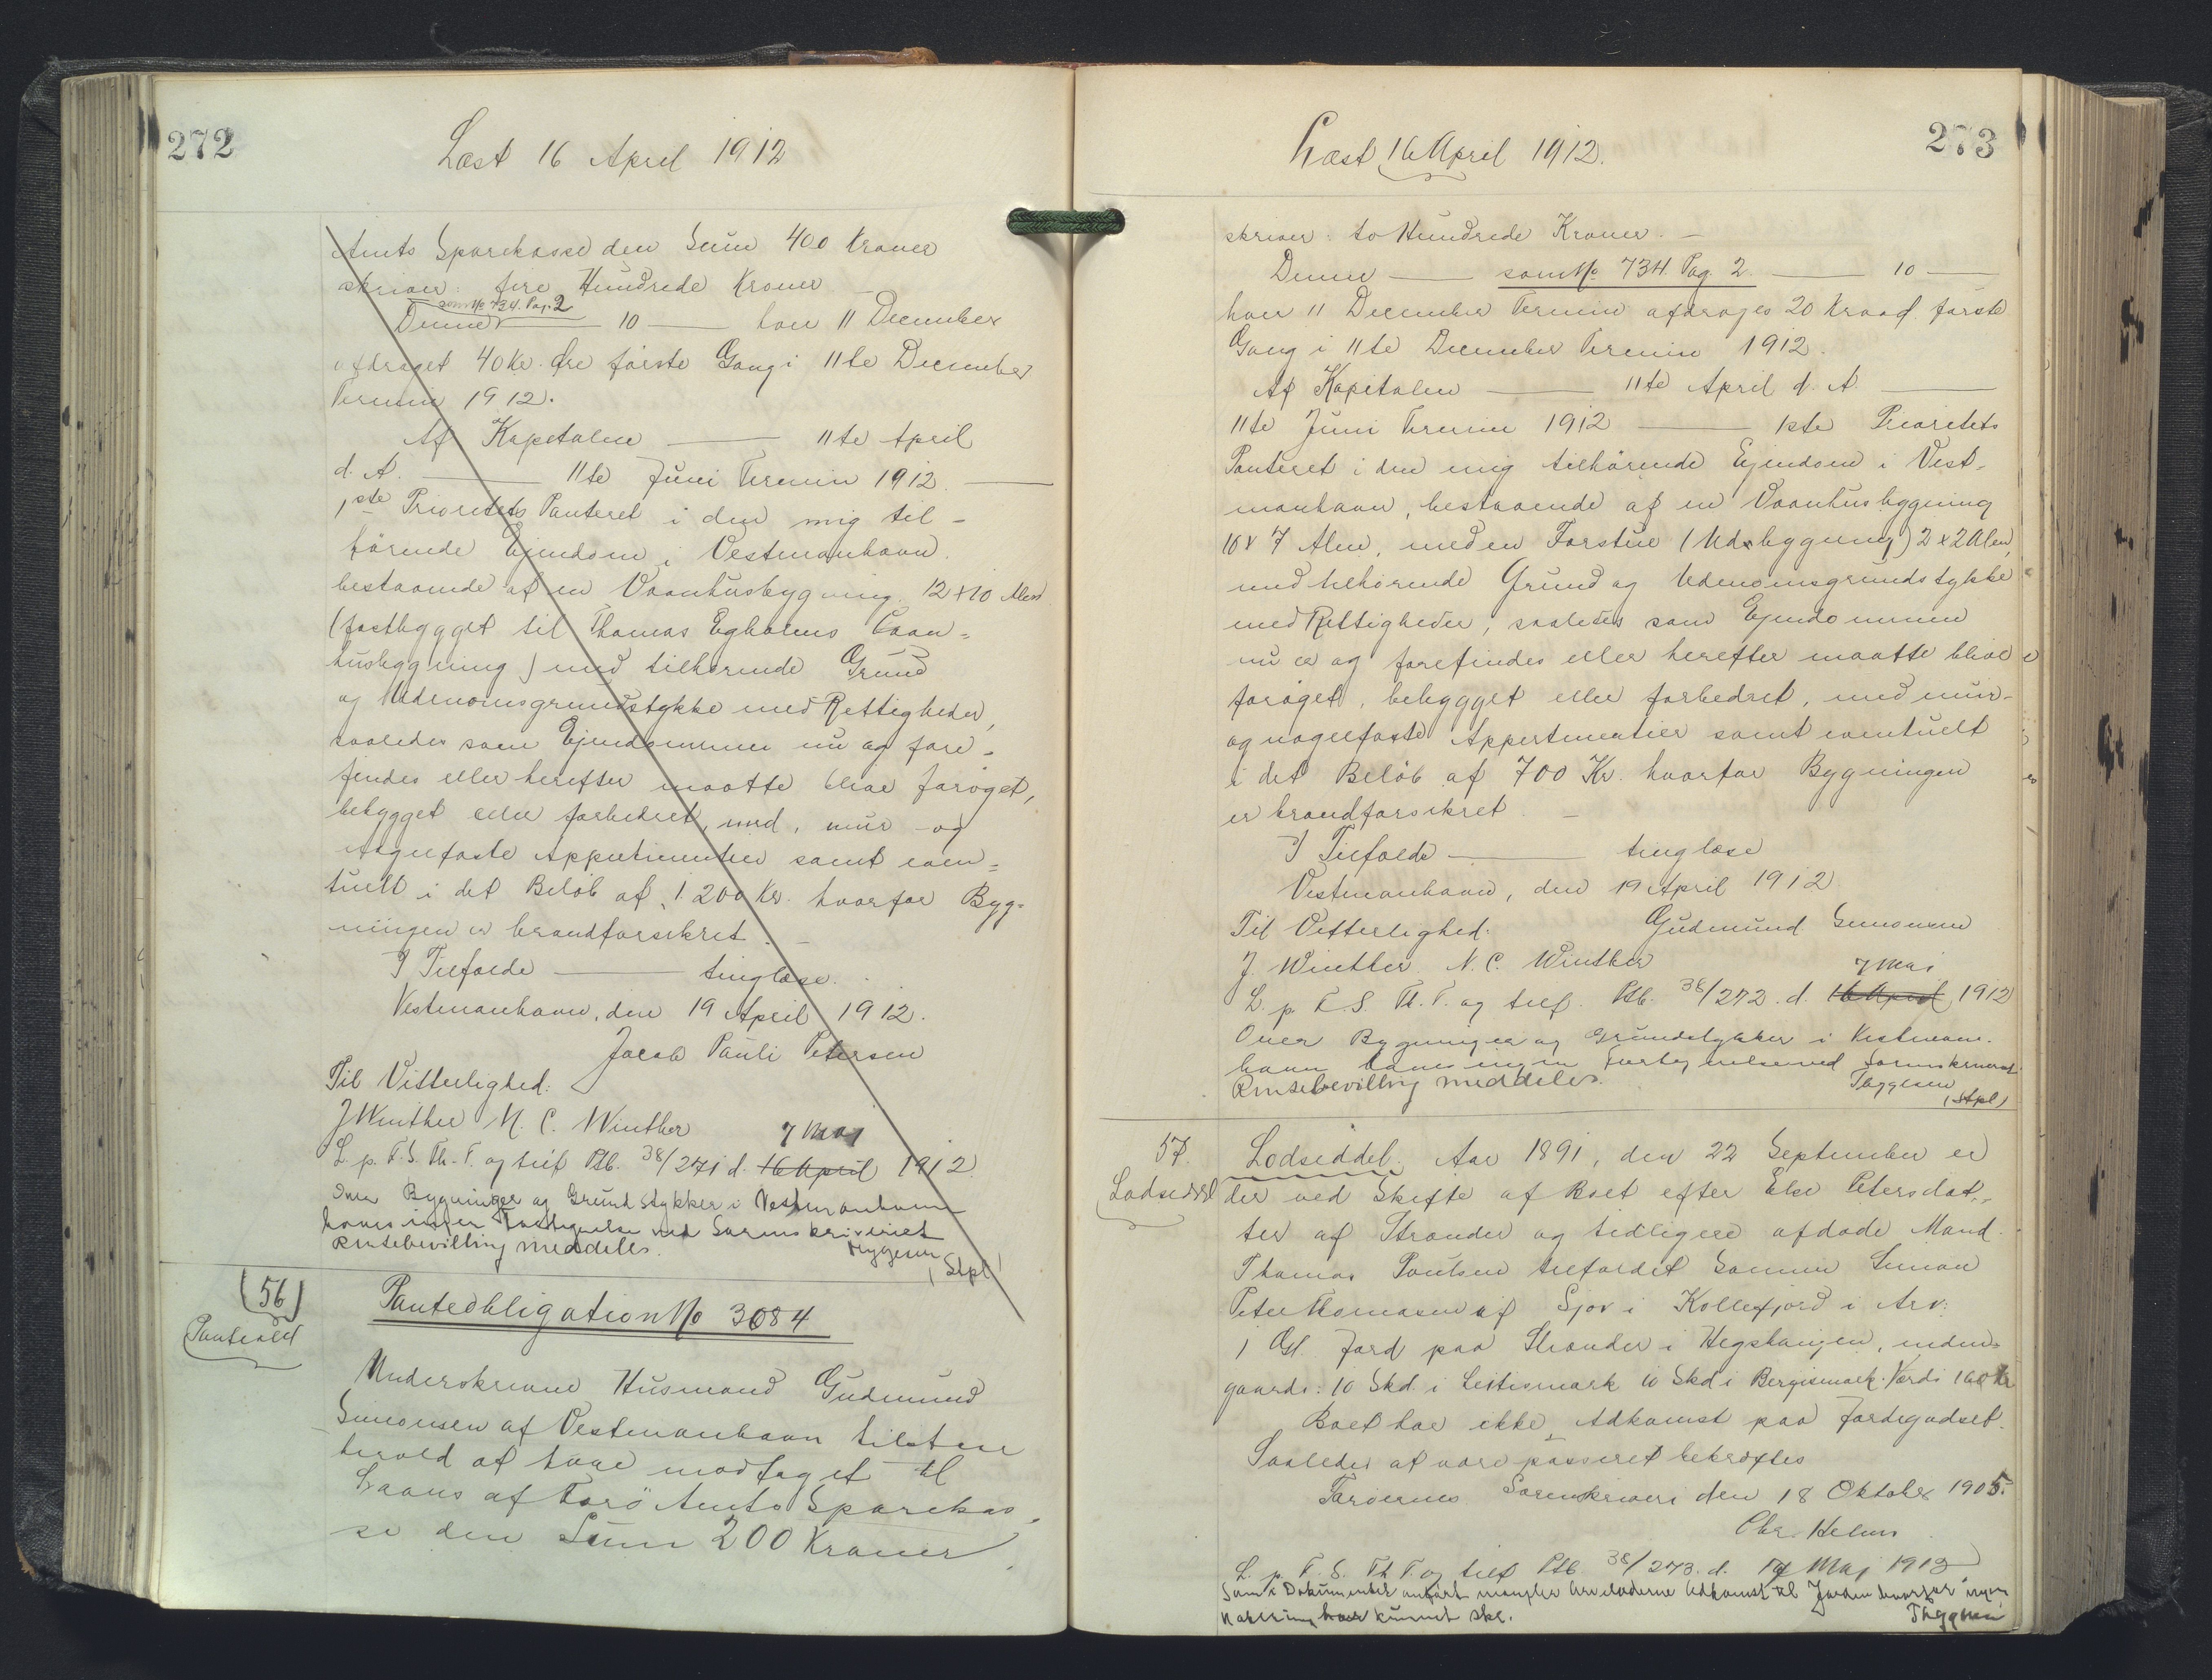 272
Læst 16 April 1912
Amts Sparekasse den Sum 400 Kroner
skriver: fire Hundrede Kroner —
som No 734. Pag. 2
Denne — 10 — hver 11 December
afdraget 40 Kr. Øre første Gang i 11te December
Termin 1912.
Af Kapitalen — 11te April
d. A. — 11te Juni Termin 1912. —
1ste Prioritets Panteret i den mig til-
hørende Ejendom i Vestmanhavn.
bestaaende af en Vaanhusbygning. 12 x 10 Alen
(fastbygget til Thomas Egholms Vaan=
husbygning) med tilhørende Grund
og Udenomsgrundstykke med Rettigheder,
saaledes som Ejendommen nu og fore-
findes eller herefter maatte blive forøget,
bebygget eller forbedret, med, mur - og
nagelfaste Appertinentier samt even=
tuelt i det Beløb af 1200 Kr. hvorfor Byg=
ningen er brandforsikret. —
I Tilfælde — tinglæse.
Vestmanhavn, den 19 April 1912.
Jacob Pauli Petersen
Til Vitterlighed:
J Winther N. C. Winther
7 Maj
L. p. F. S. Th. T. og tilf Ptb. 38/271 d. 16 April 1912.
Over Bygninger og Grundstykker i Vestmanhavn
haves ingen Fortegnelse ved Sorenskriveriet
Rentebevilling meddeles.
Thygesen
(Stpl)
(56)
Panteobl
Panteobligation No 3084
Underskrevne Husmand Gudmund
Simonsen af Vestmanhavn tilstaar
herved at have modtaget til
Laans af Færø Amts Sparekas-
se den Sum 200 Kroner
273
Læst 16 April 1912.
skriver: to Hundrede Kroner. —
Denne — som No. 734. Pag. 2. — 10 —
hver 11 December Termin afdrages 20 Kr første
Gang i 11te December Termin 1912.
Af Kapitalen — 11te April d. A. —
11te Juni Termin 1912 — 1ste Prioritets
Panteret i den mig tilhørende Ejendom i Vest-
manhavn, bestaaende af en Vaanhusbygning
10 x 7 Alen, med en Forstue (Udbygning) 2 x 2 Alen,
med tilhørende Grund og Udenomsgrundstykke
med Rettigheder, saaledes som Ejendommen
nu er og forefindes eller herefter maatte blive
forøget, bebygget eller forbedret, med mur-
og nagelfaste Appertinentier samt eventuelt
i det Beløb af 700 Kr. hvorfor Bygningen
er brandforsikret. —
I Tilfælde — tinglæse
Vestmanhavn, den 19 April 1912
Til Vitterlighed. Gudmund Simonsen
J. Winther. N. C. Winther
7 Maj
L. p. F. S. Th. T. og tilf. Ptb. 38/272. d. 16 April 1912
Over Bygninger og Grundstykker i Vestman-
havn haves ingen Fortegnelse ved Sorenskriveriet
Rentebevilling meddeles.
Thygesen
(Stpl)
57.
Lodseddel
Lodseddel. Aar 1891, den 22 September er
der ved Skifte af Boet efter Else Petersdat-
ter af Strænder og tidligere afdøde Mand
Thomas Poulsen tilfaldet Sønnen Simon
Peter Thomasen af Sjov i Kollefjord i Arv:
1 Gl. Jord paa Strænder i Hegshaugen, inden-
gaards: 10 Skd. i Leitismark 10 Skd i Bergismark. Værdi 160 Kr
Boet har ikke Adkomst paa Jordegodset.
Saaledes at være passeret bekræftes
Færøernes Sorenskriveri den 18 Oktober 1905.
Chr. Helms
L. p. F. S. Th T. og tilf Ptb. 38/273. d. 7 Maj 1912
Som i Dokumentet anført mangler Arveladerne Adkomst til Jorden hvorfor ingen
Notering har kunnet ske.
Thygesen